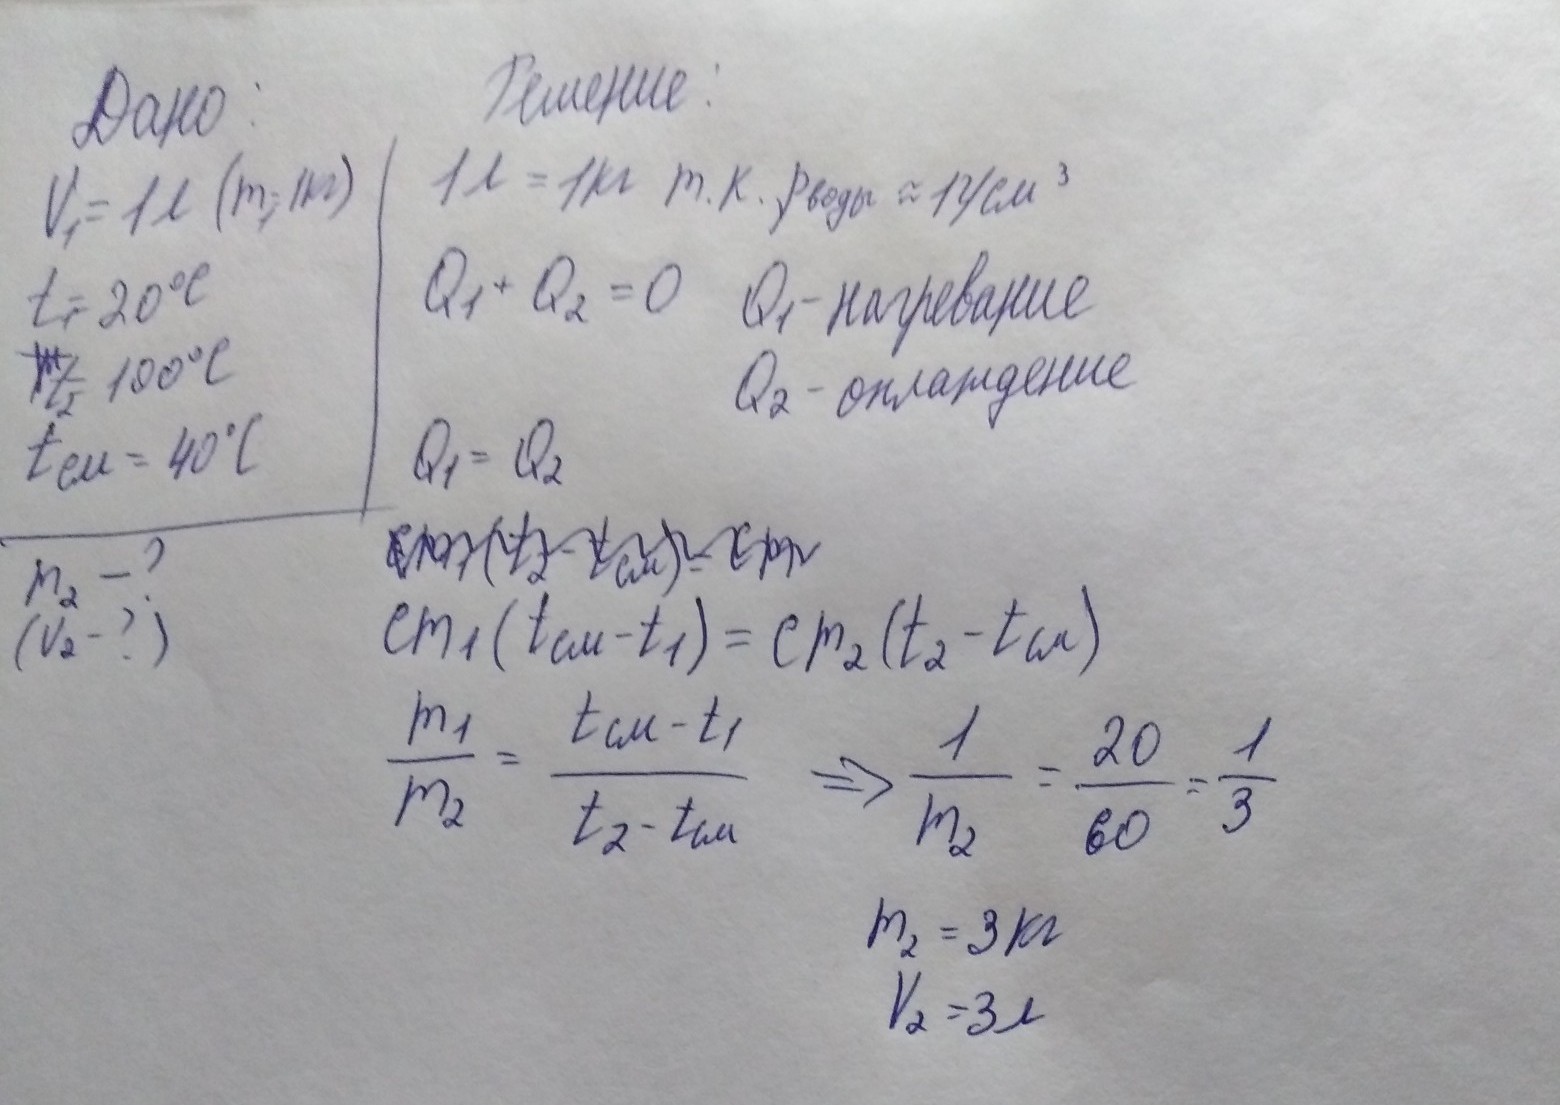 Дано:
V₁ = 1 л (m₁ = 1кг)
t₁ = 20°C
t₂ = 100°C
tсм = 40°C
m₂ – ?
(V₂ – ?)
Решение:
1 л = 1кг т.к. ρводы ≈ 1г/см³
Q₁ + Q₂ = 0 Q₁ – нагревание
Q₂ – охлаждение
Q₁ = Q₂
cm₁(tсм – t₁) = cm₂(t₂ – tсм)
m₁/m₂ = (tсм – t₁)/(t₂ – tсм) ⇒ 1/m₂ = 20/60 = 1/3
m₂ = 3 кг
V₂ = 3 л